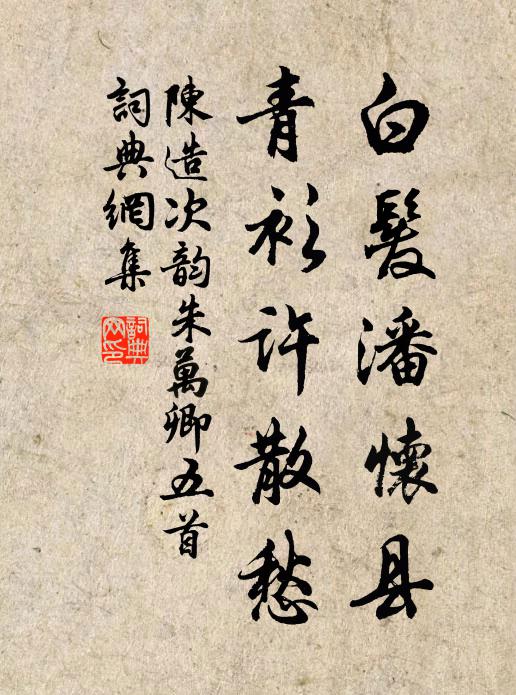 白髮潘懷县
青衫許散愁
陳造次韵朱萬卿五首
詞典網集
詞典網印